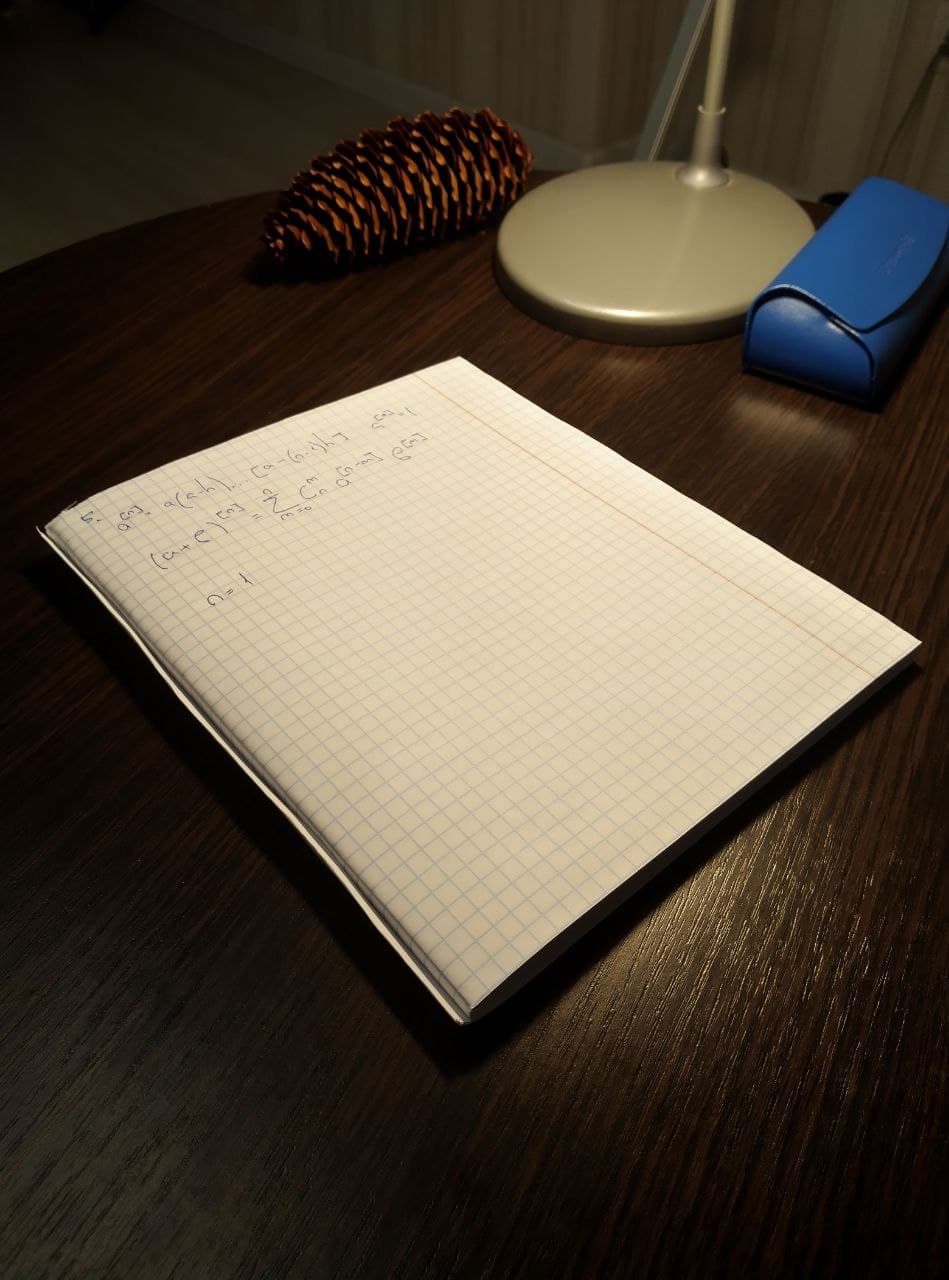 5. a^[n] = a(a-h)...[a-(n-1)h] a^[0]=1
(a+b)^[n] = \sum_{m=0}^{n} C_n^m a^[n-m] b^[m]
n=1